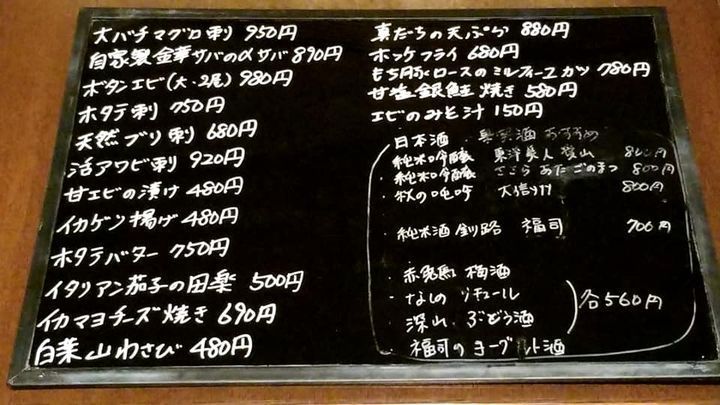 大バチマグロ刺 950円
自家製金華サバの〆サバ 890円
ボタンエビ(大・2尾) 980円
ホタテ刺 750円
天然ブリ刺 680円
活アワビ刺 920円
甘エビの漬け 480円
イカゲソ揚げ 480円
ホタテバター 750円
イタリアン茄子の田楽 500円
イカマヨチーズ焼き 690円
白菜山わさび 480円
真だちの天ぷら 880円
ホッケフライ 680円
もち豚ロースのミルフィーユカツ 780円
甘塩銀鮭焼き 580円
エビのみそ汁 150円
日本酒 おすすめ
・純米吟醸 東洋美人 800円
・純米吟醸 ささら あたごのまつ 800円
・秋の吟 大信州 800円
・純米酒 釧路 福司 700円
・梅酒
・なしのリキュール
・深山ぶどう酒
・福司のヨーグルト酒
各560円